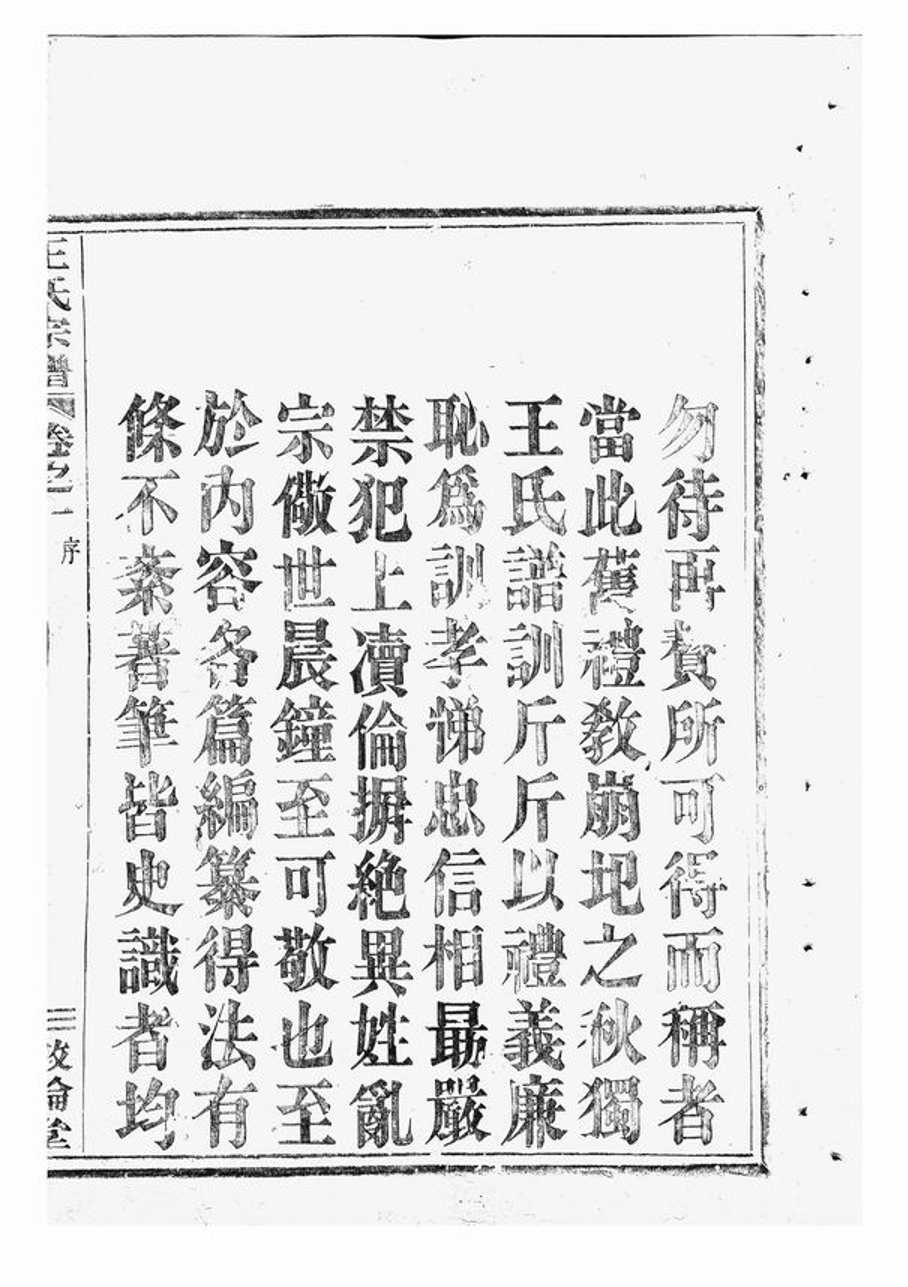 勿待再贅所可得而稱者
當此舊禮敎崩圯之秋獨
王氏譜訓斤斤以禮義廉
恥爲訓孝悌忠信相勗嚴
禁犯上瀆倫摒絶異姓亂
宗儆世晨鐘至可敬也至
於內容各篇編纂得法有
條不紊著筆皆史識者均
王氏宗譜 卷之一 序 三 敦倫堂